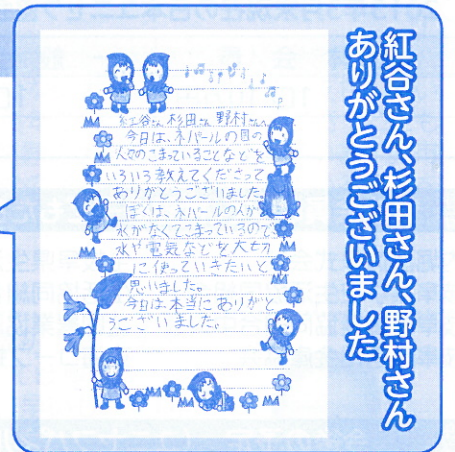 紅谷さん、杉田さん、野村さん
ありがとうございました
紅谷さん 杉田さん 野村さんへ
今日は、ネパールの国の
人々のこまっていることなどを
いろいろ教えてくださって
ありがとうございました。
ぼくは、ネパールの人が
水がなくてこまっているので
水や電気などを大切
に使っていきたいと
思いました。
今日は本当にありがと
うございました。